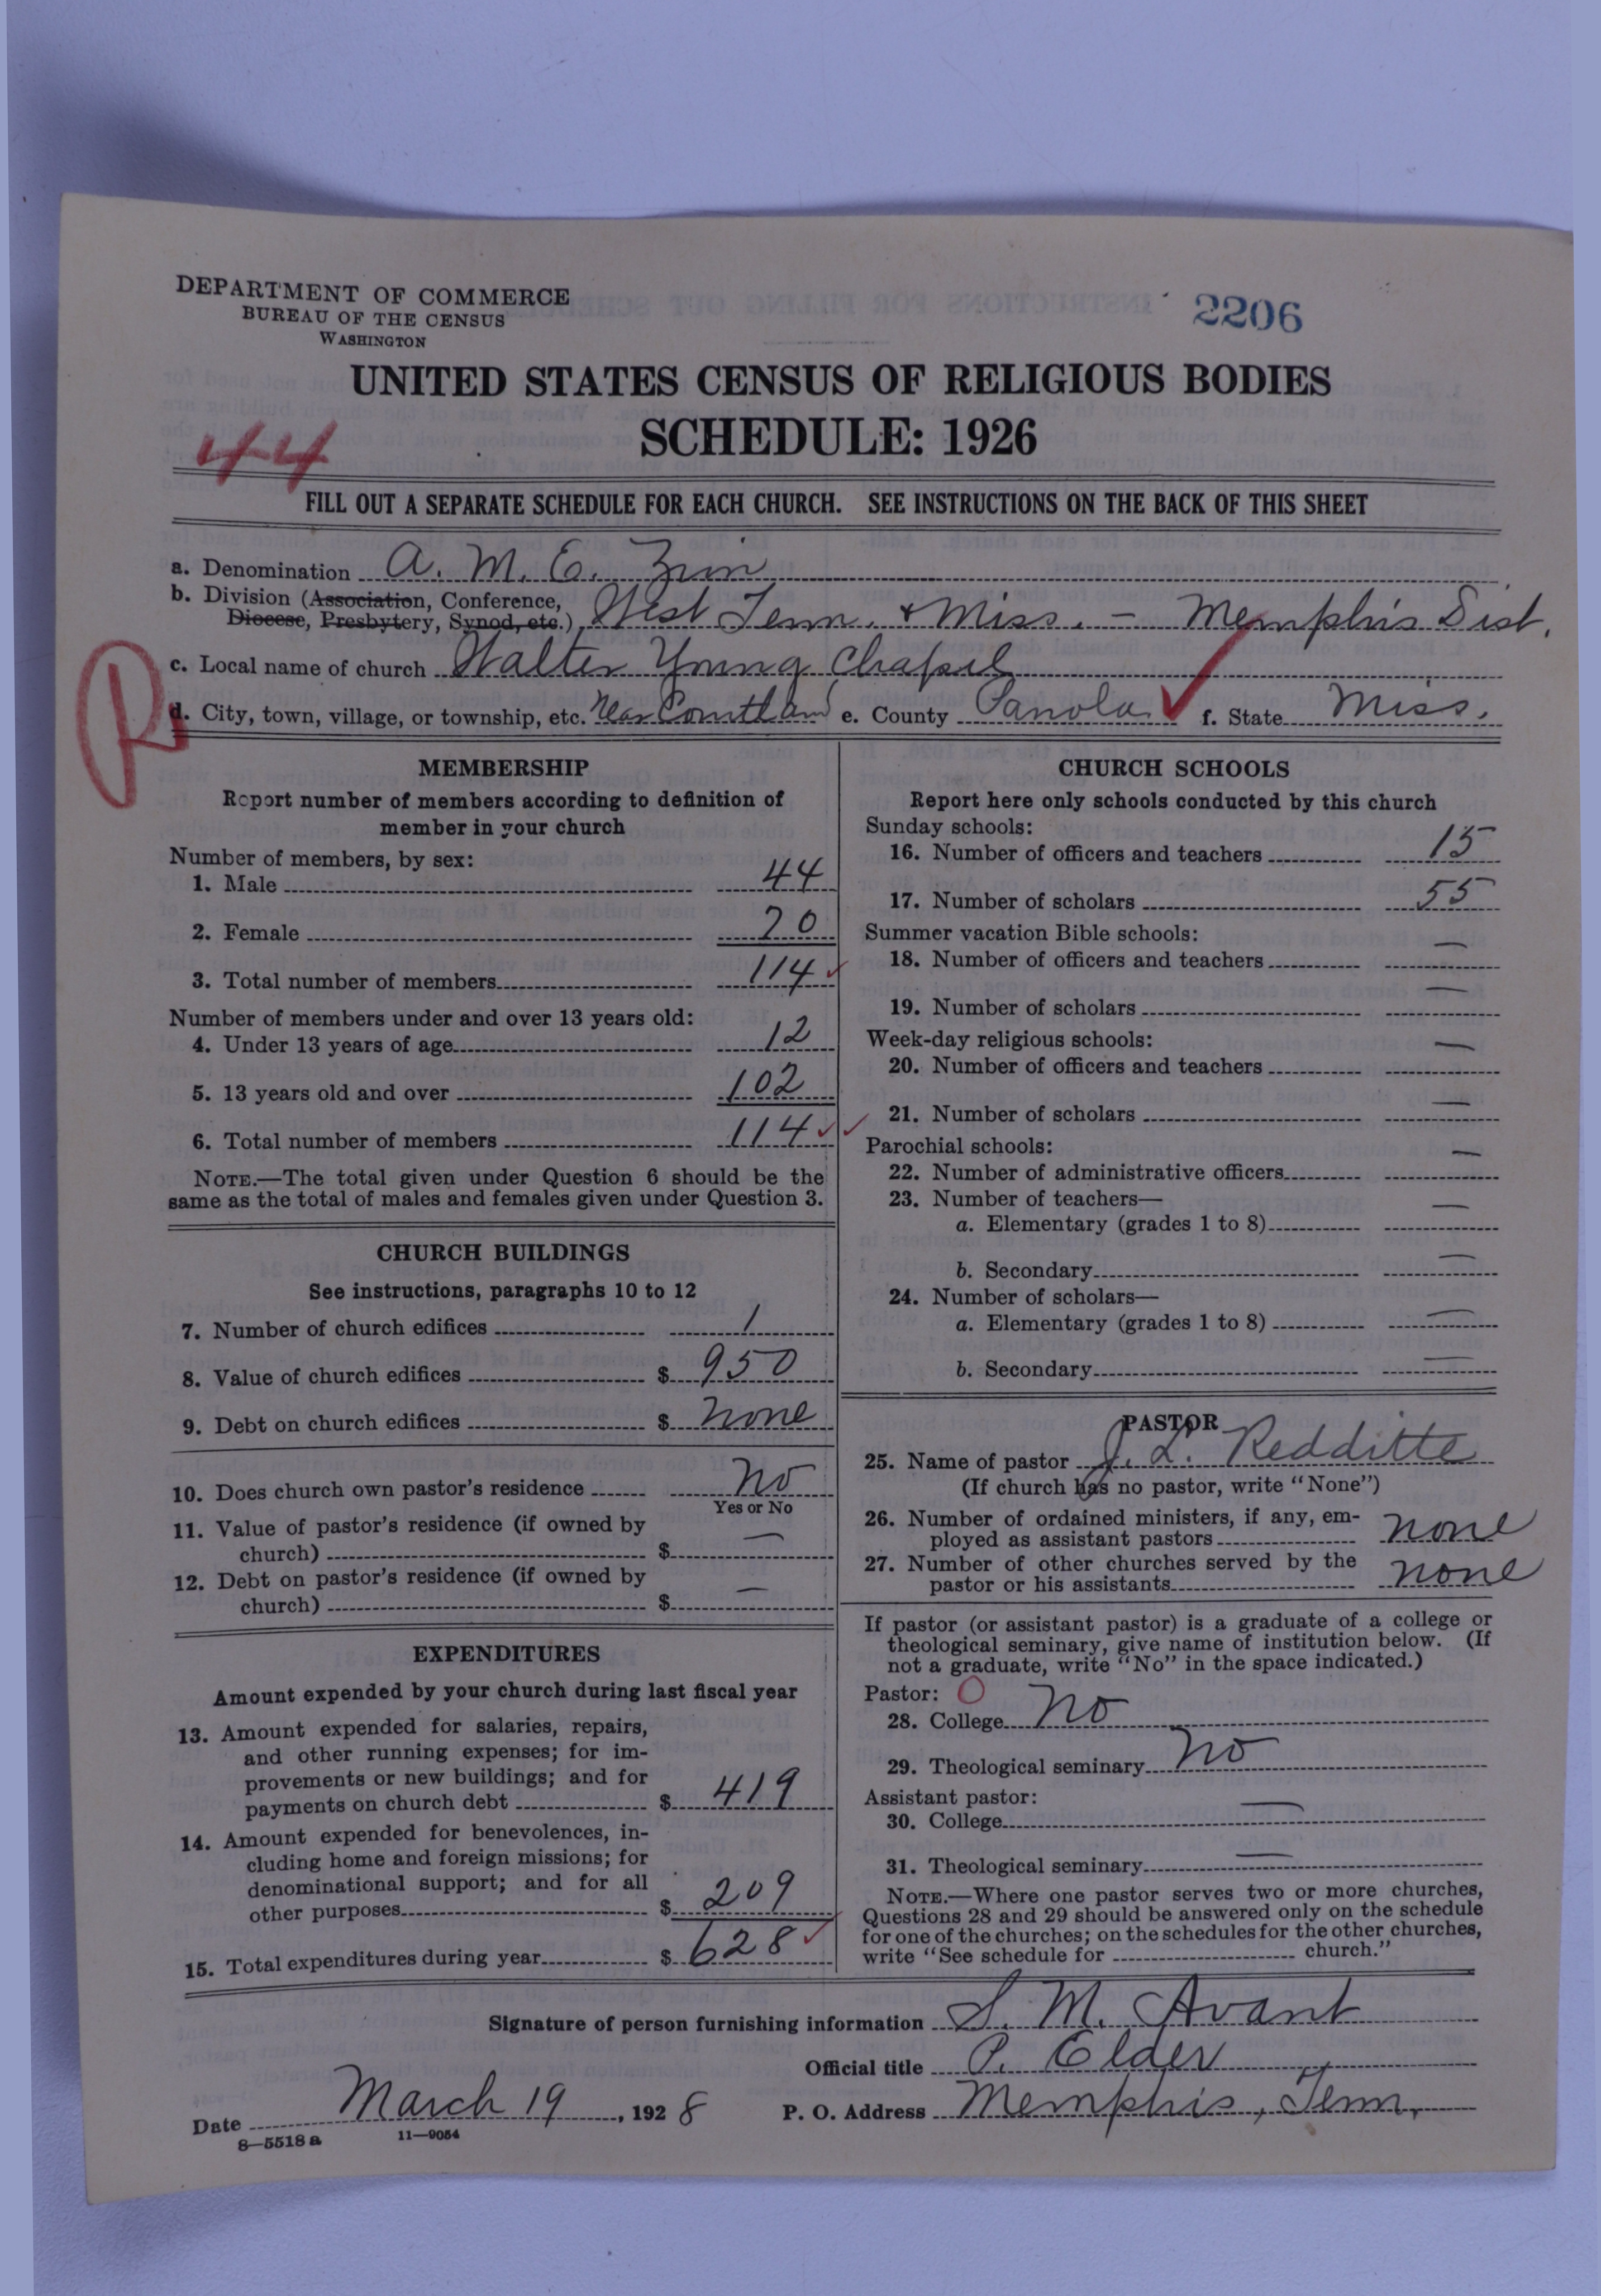 DEPARTMENT OF COMMERCE
BUREAU OF THE CENSUS
WASHINGTON
2206
UNITED STATES CENSUS OF RELIGIOUS BODIES
SCHEDULE: 1926
44
FILL OUT A SEPARATE SCHEDULE FOR EACH CHURCH. SEE INSTRUCTIONS ON THE BACK OF THIS SHEET
a. Denomination A. M. E. Zion
b. Division (Association, Conference, Diocese, Presbytery, Synod, etc.) West Tenn. & Miss. – Memphis Dist.
c. Local name of church Walter Young Chapel
R
d. City, town, village, or township, etc. Near Courtland e. County Panola ✓ f. State Miss.
MEMBERSHIP
Report number of members according to definition of
member in your church
Number of members, by sex:
1. Male 44
2. Female 70
3. Total number of members 114 ✓
Number of members under and over 13 years old:
4. Under 13 years of age 12
5. 13 years old and over 102
6. Total number of members 114 ✓ ✓
NOTE.—The total given under Question 6 should be the
same as the total of males and females given under Question 3.
CHURCH BUILDINGS
See instructions, paragraphs 10 to 12
7. Number of church edifices 1
8. Value of church edifices $ 950
9. Debt on church edifices $ none
10. Does church own pastor's residence No
Yes or No
11. Value of pastor's residence (if owned by
church) $ —
12. Debt on pastor's residence (if owned by
church) $ —
EXPENDITURES
Amount expended by your church during last fiscal year
13. Amount expended for salaries, repairs,
and other running expenses; for im-
provements or new buildings; and for
payments on church debt $ 419
14. Amount expended for benevolences, in-
cluding home and foreign missions; for
denominational support; and for all
other purposes $ 209
15. Total expenditures during year $ 628 ✓
CHURCH SCHOOLS
Report here only schools conducted by this church
Sunday schools:
16. Number of officers and teachers 15
17. Number of scholars 55
Summer vacation Bible schools:
18. Number of officers and teachers —
19. Number of scholars —
Week-day religious schools:
20. Number of officers and teachers —
21. Number of scholars —
Parochial schools:
22. Number of administrative officers —
23. Number of teachers—
a. Elementary (grades 1 to 8) —
b. Secondary —
24. Number of scholars—
a. Elementary (grades 1 to 8) —
b. Secondary —
PASTOR
25. Name of pastor J. L. Redditte
(If church has no pastor, write "None")
26. Number of ordained ministers, if any, em-
ployed as assistant pastors none
27. Number of other churches served by the
pastor or his assistants none
If pastor (or assistant pastor) is a graduate of a college or
theological seminary, give name of institution below. (If
not a graduate, write "No" in the space indicated.)
Pastor: O
28. College No
29. Theological seminary No
Assistant pastor:
30. College —
31. Theological seminary —
NOTE.—Where one pastor serves two or more churches,
Questions 28 and 29 should be answered only on the schedule
for one of the churches; on the schedules for the other churches,
write "See schedule for church."
Signature of person furnishing information S. M. Avant
Official title P. Elder
Date March 19, 1928 P. O. Address Memphis, Tenn.
8—5518 a 11—9054